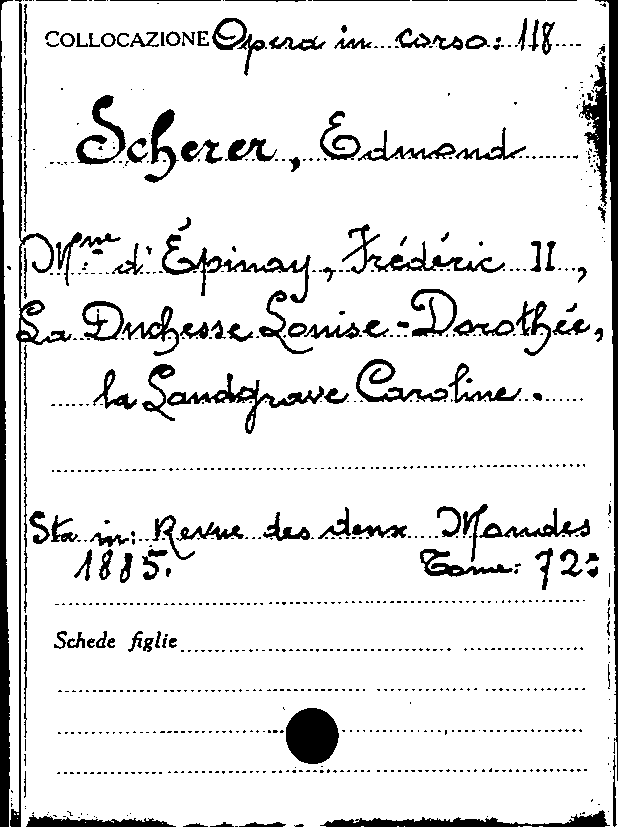 COLLOCAZIONE Opera in corso: 118
Scherer, Edmond
Mme d'Épinay, Frédéric II,
La Duchesse Louise-Dorothée,
la Landgrave Caroline.
Sta in: Revue des deux Mondes
1885. Tome: 72:
Schede figlie